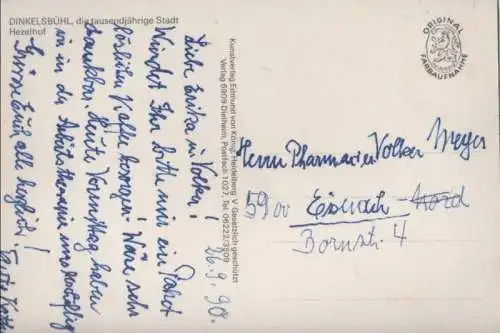 DINKELSBÜHL, die tausendjährige Stadt
Hezelhof
Liebe Erika u. Volker!
Würdet Ihr bitte mir ein Paket
Kaffee besorgen! Wäre sehr
dankbar. Heute Vormittag haben
wir in der Arbeitstherapie
Grüsse Euch alle herzlich!
16.9.90.
Kunstverlag Edmund von König, Heidelberg V Gesetzlich geschützt
Verlag 6909 Dielheim, Postfach 1027, Tel. 06222/3809
ORIGINAL
FARBAUFNAHME
Herrn Pharmazier Volker Meyer
5900 Eisenach-Nord
Bornstr. 4